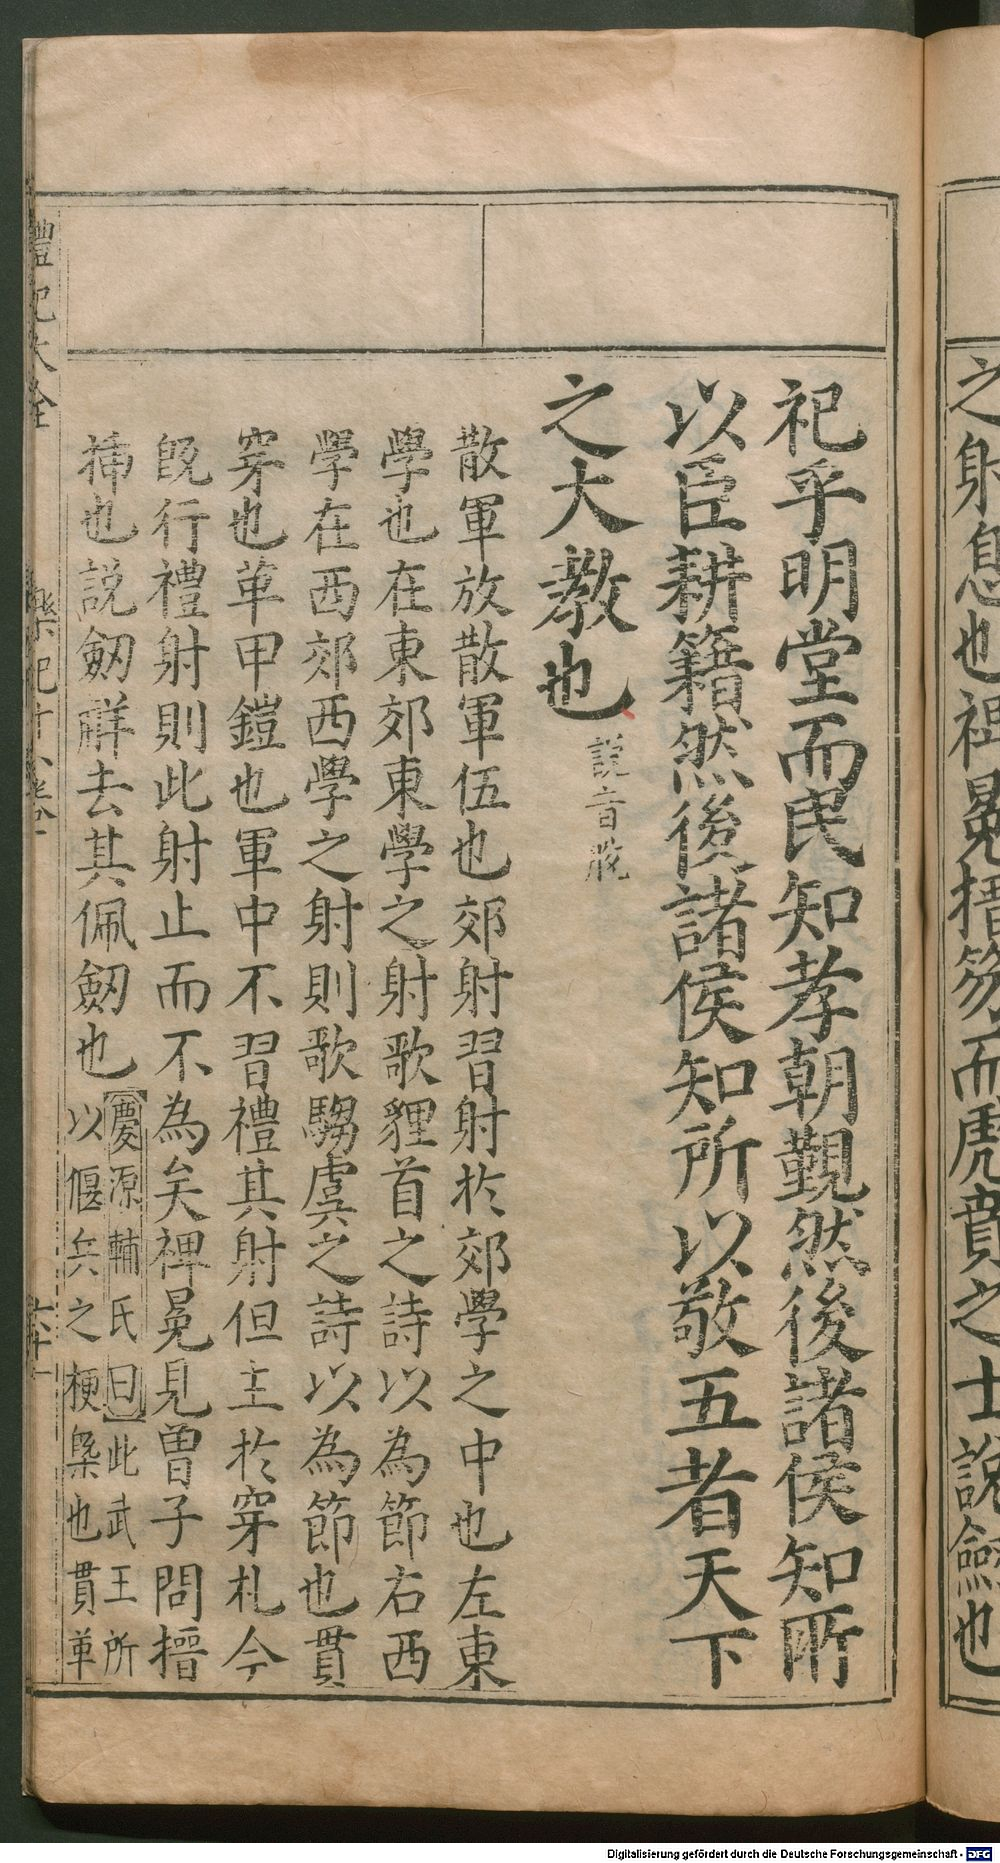 之射息也裨冕搢笏而虎賁之士說劒也
祀乎明堂而民知孝朝覲然後諸侯知所
以臣耕籍然後諸侯知所以敬五者天下
之大教也
說音脫
散軍放散軍伍也郊射習射於郊學之中也左東
學也在東郊東學之射歌貍首之詩以為節右西
學在西郊西學之射則歌騶虞之詩以為節也貫
穿也革甲鎧也軍中不習禮其射但主於穿札今
既行禮射則此射止而不為矣裨冕見曾子問搢
插也說劒解去其佩劒也
【慶源輔氏曰】此武王所
以偃兵之梗槩也貫革
禮記大全
樂記十八卷
六十一
Digitalisierung gefördert durch die Deutsche Forschungsgemeinschaft - DFG